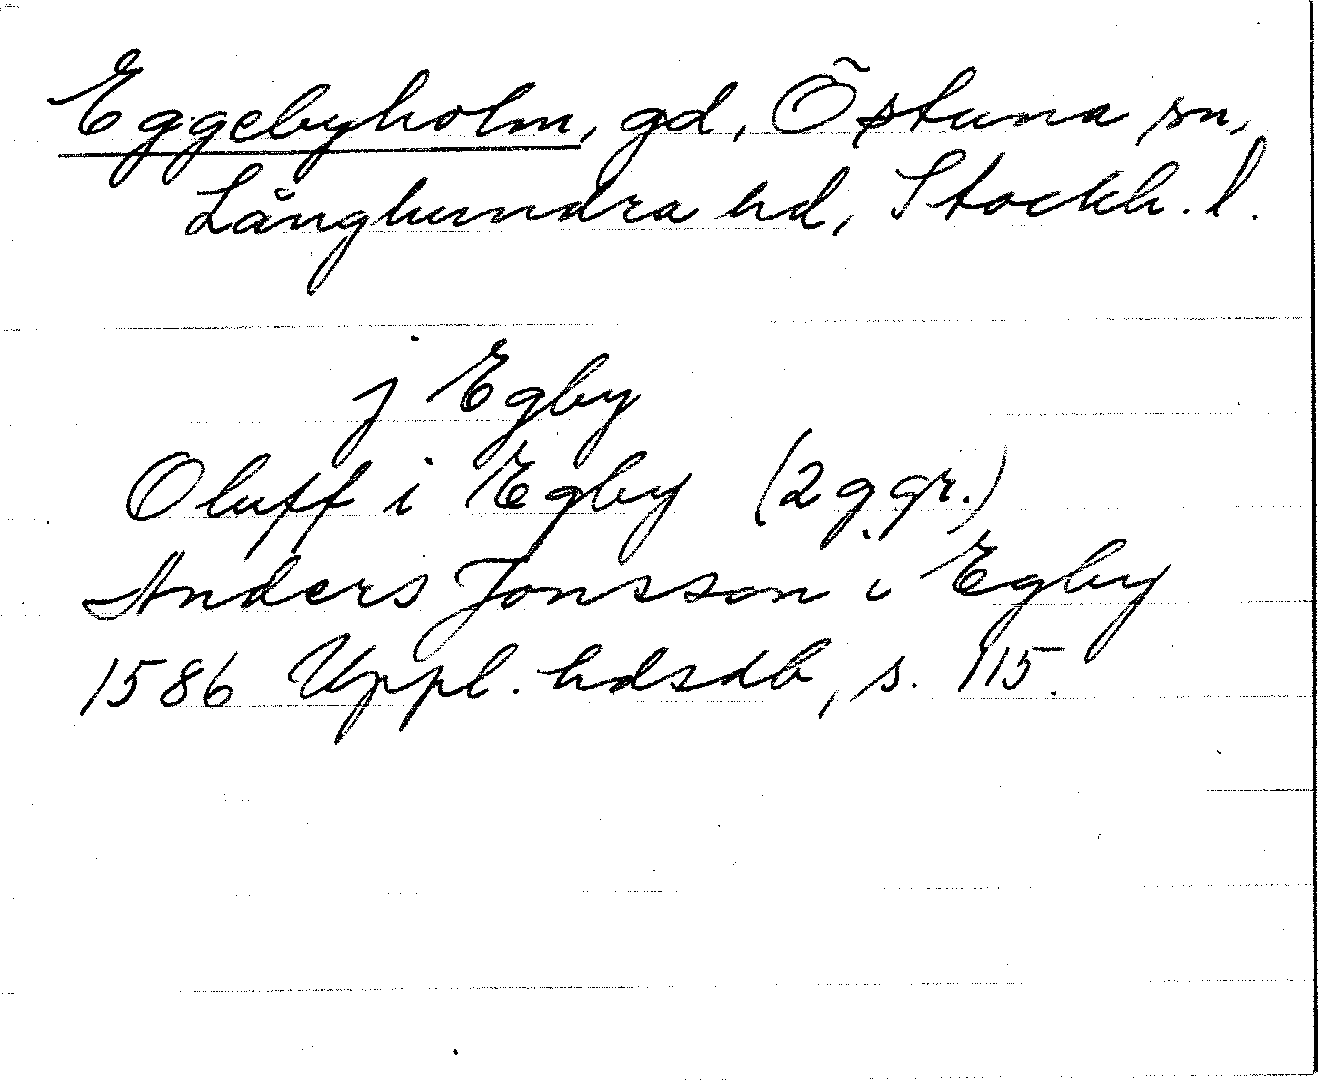 Eggebyholm, gd, Östuna sn,
Långhundra hd, Stockh. l.
j Egby
Oluff i Egby (2 ggr.)
Anders Jonsson i Egby
1586 Uppl. hdsdb, s. 115.